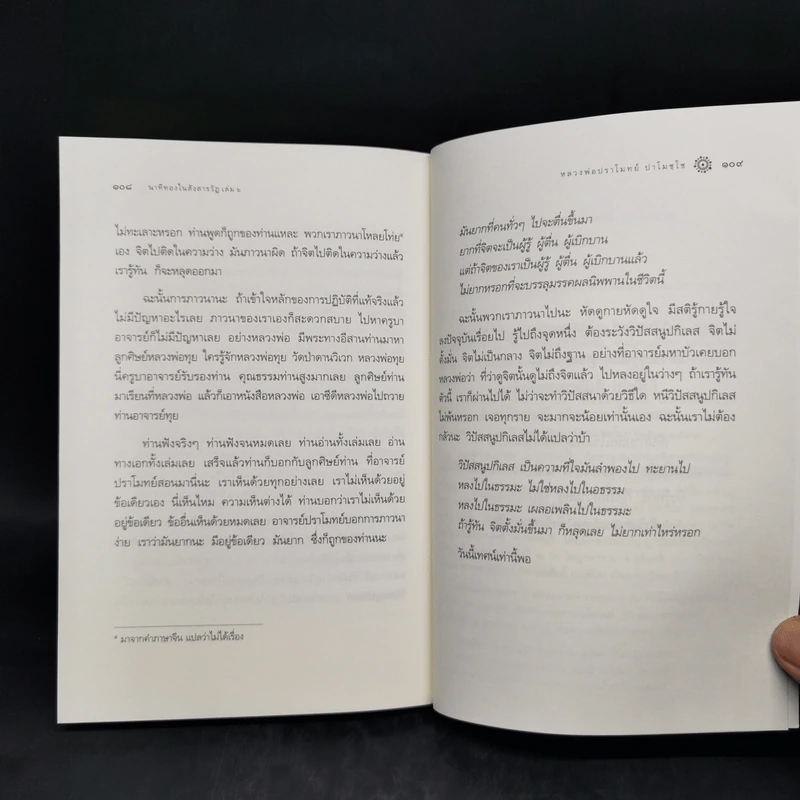 ๑๐๘ นาทีทองในสังสารวัฏ เล่ม ๒
ไม่ทะเลาะหรอก ท่านพูดก็ถูกของท่านแหละ พวกเราภาวนาโหลยโท่ย*
เอง จิตไปติดในความว่าง มันภาวนาผิด ถ้าจิตไปติดในความว่างแล้ว
เรารู้ทัน ก็จะหลุดออกมา
ฉะนั้นการภาวนานะ ถ้าเข้าใจหลักของการปฏิบัติที่แท้จริงแล้ว
ไม่มีปัญหาอะไรเลย ภาวนาของเราเองก็สะดวกสบาย ไปหาครูบา
อาจารย์ก็ไม่มีปัญหาเลย อย่างหลวงพ่อ มีพระทางอีสานท่านมาหา
ลูกศิษย์หลวงพ่อทุย ใครรู้จักหลวงพ่อทุย วัดป่าดานวิเวก หลวงพ่อทุย
นี่ครูบาอาจารย์รับรองท่าน คุณธรรมท่านสูงมากเลย ลูกศิษย์ท่าน
มาเรียนที่หลวงพ่อ แล้วก็เอาหนังสือหลวงพ่อ เอาซีดีหลวงพ่อไปถวาย
ท่านอาจารย์ทุย
ท่านฟังจริงๆ ท่านฟังจนหมดเลย ท่านอ่านทั้งเล่มเลย อ่าน
ทางเอกทั้งเล่มเลย เสร็จแล้วท่านก็บอกกับลูกศิษย์ท่าน ที่อาจารย์
ปราโมทย์สอนมานี่นะ เราเห็นด้วยทุกอย่างเลย เราไม่เห็นด้วยอยู่
ข้อเดียวเอง นี่เห็นไหม ความเห็นต่างได้ ท่านบอกว่าเราไม่เห็นด้วย
อยู่ข้อเดียว ข้ออื่นเห็นด้วยหมดเลย อาจารย์ปราโมทย์บอกการภาวนา
ง่าย เราว่ามันยากนะ มีอยู่ข้อเดียว มันยาก ซึ่งก็ถูกของท่านนะ
* มาจากคำภาษาจีน แปลว่าไม่ได้เรื่อง
หลวงพ่อปราโมทย์ ปาโมชฺโช ๑๐๙
มันยากที่คนทั่วๆ ไปจะตื่นขึ้นมา
ยากที่จิตจะเป็นผู้รู้ ผู้ตื่น ผู้เบิกบาน
แต่ถ้าจิตของเราเป็นผู้รู้ ผู้ตื่น ผู้เบิกบานแล้ว
ไม่ยากหรอกที่จะบรรลุมรรคผลนิพพานในชีวิตนี้
ฉะนั้นพวกเราภาวนาไปนะ หัดดูกายหัดดูใจ มีสติรู้กายรู้ใจ
ลงปัจจุบันเรื่อยไป รู้ไปถึงจุดหนึ่ง ต้องระวังวิปัสสนูปกิเลส จิตไม่
ตั้งมั่น จิตไม่เป็นกลาง จิตไม่ถึงฐาน อย่างที่อาจารย์มหาบัวเคยบอก
หลวงพ่อว่า ที่ว่าดูจิตนั้นดูไม่ถึงจิตแล้ว ไปหลงอยู่ในว่างๆ ถ้าเรารู้ทัน
ตัวนี้ เราก็ผ่านไปได้ ไม่ว่าจะทำวิปัสสนาด้วยวิธีใด หนีวิปัสสนูปกิเลส
ไม่พ้นหรอก เจอทุกราย จะมากจะน้อยเท่านั้นเอง ฉะนั้นเราไม่ต้อง
กลัวนะ วิปัสสนูปกิเลสไม่ได้แปลว่าบ้า
วิปัสสนูปกิเลส เป็นความที่ใจมันลำพองไป ทะยานไป
หลงไปในธรรมะ ไม่ใช่หลงไปในอธรรม
หลงไปในธรรมะ เผลอเพลินไปในธรรมะ
ถ้ารู้ทัน จิตตั้งมั่นขึ้นมา ก็หลุดเลย ไม่ยากเท่าไหร่หรอก
วันนี้เทศน์เท่านี้พอ